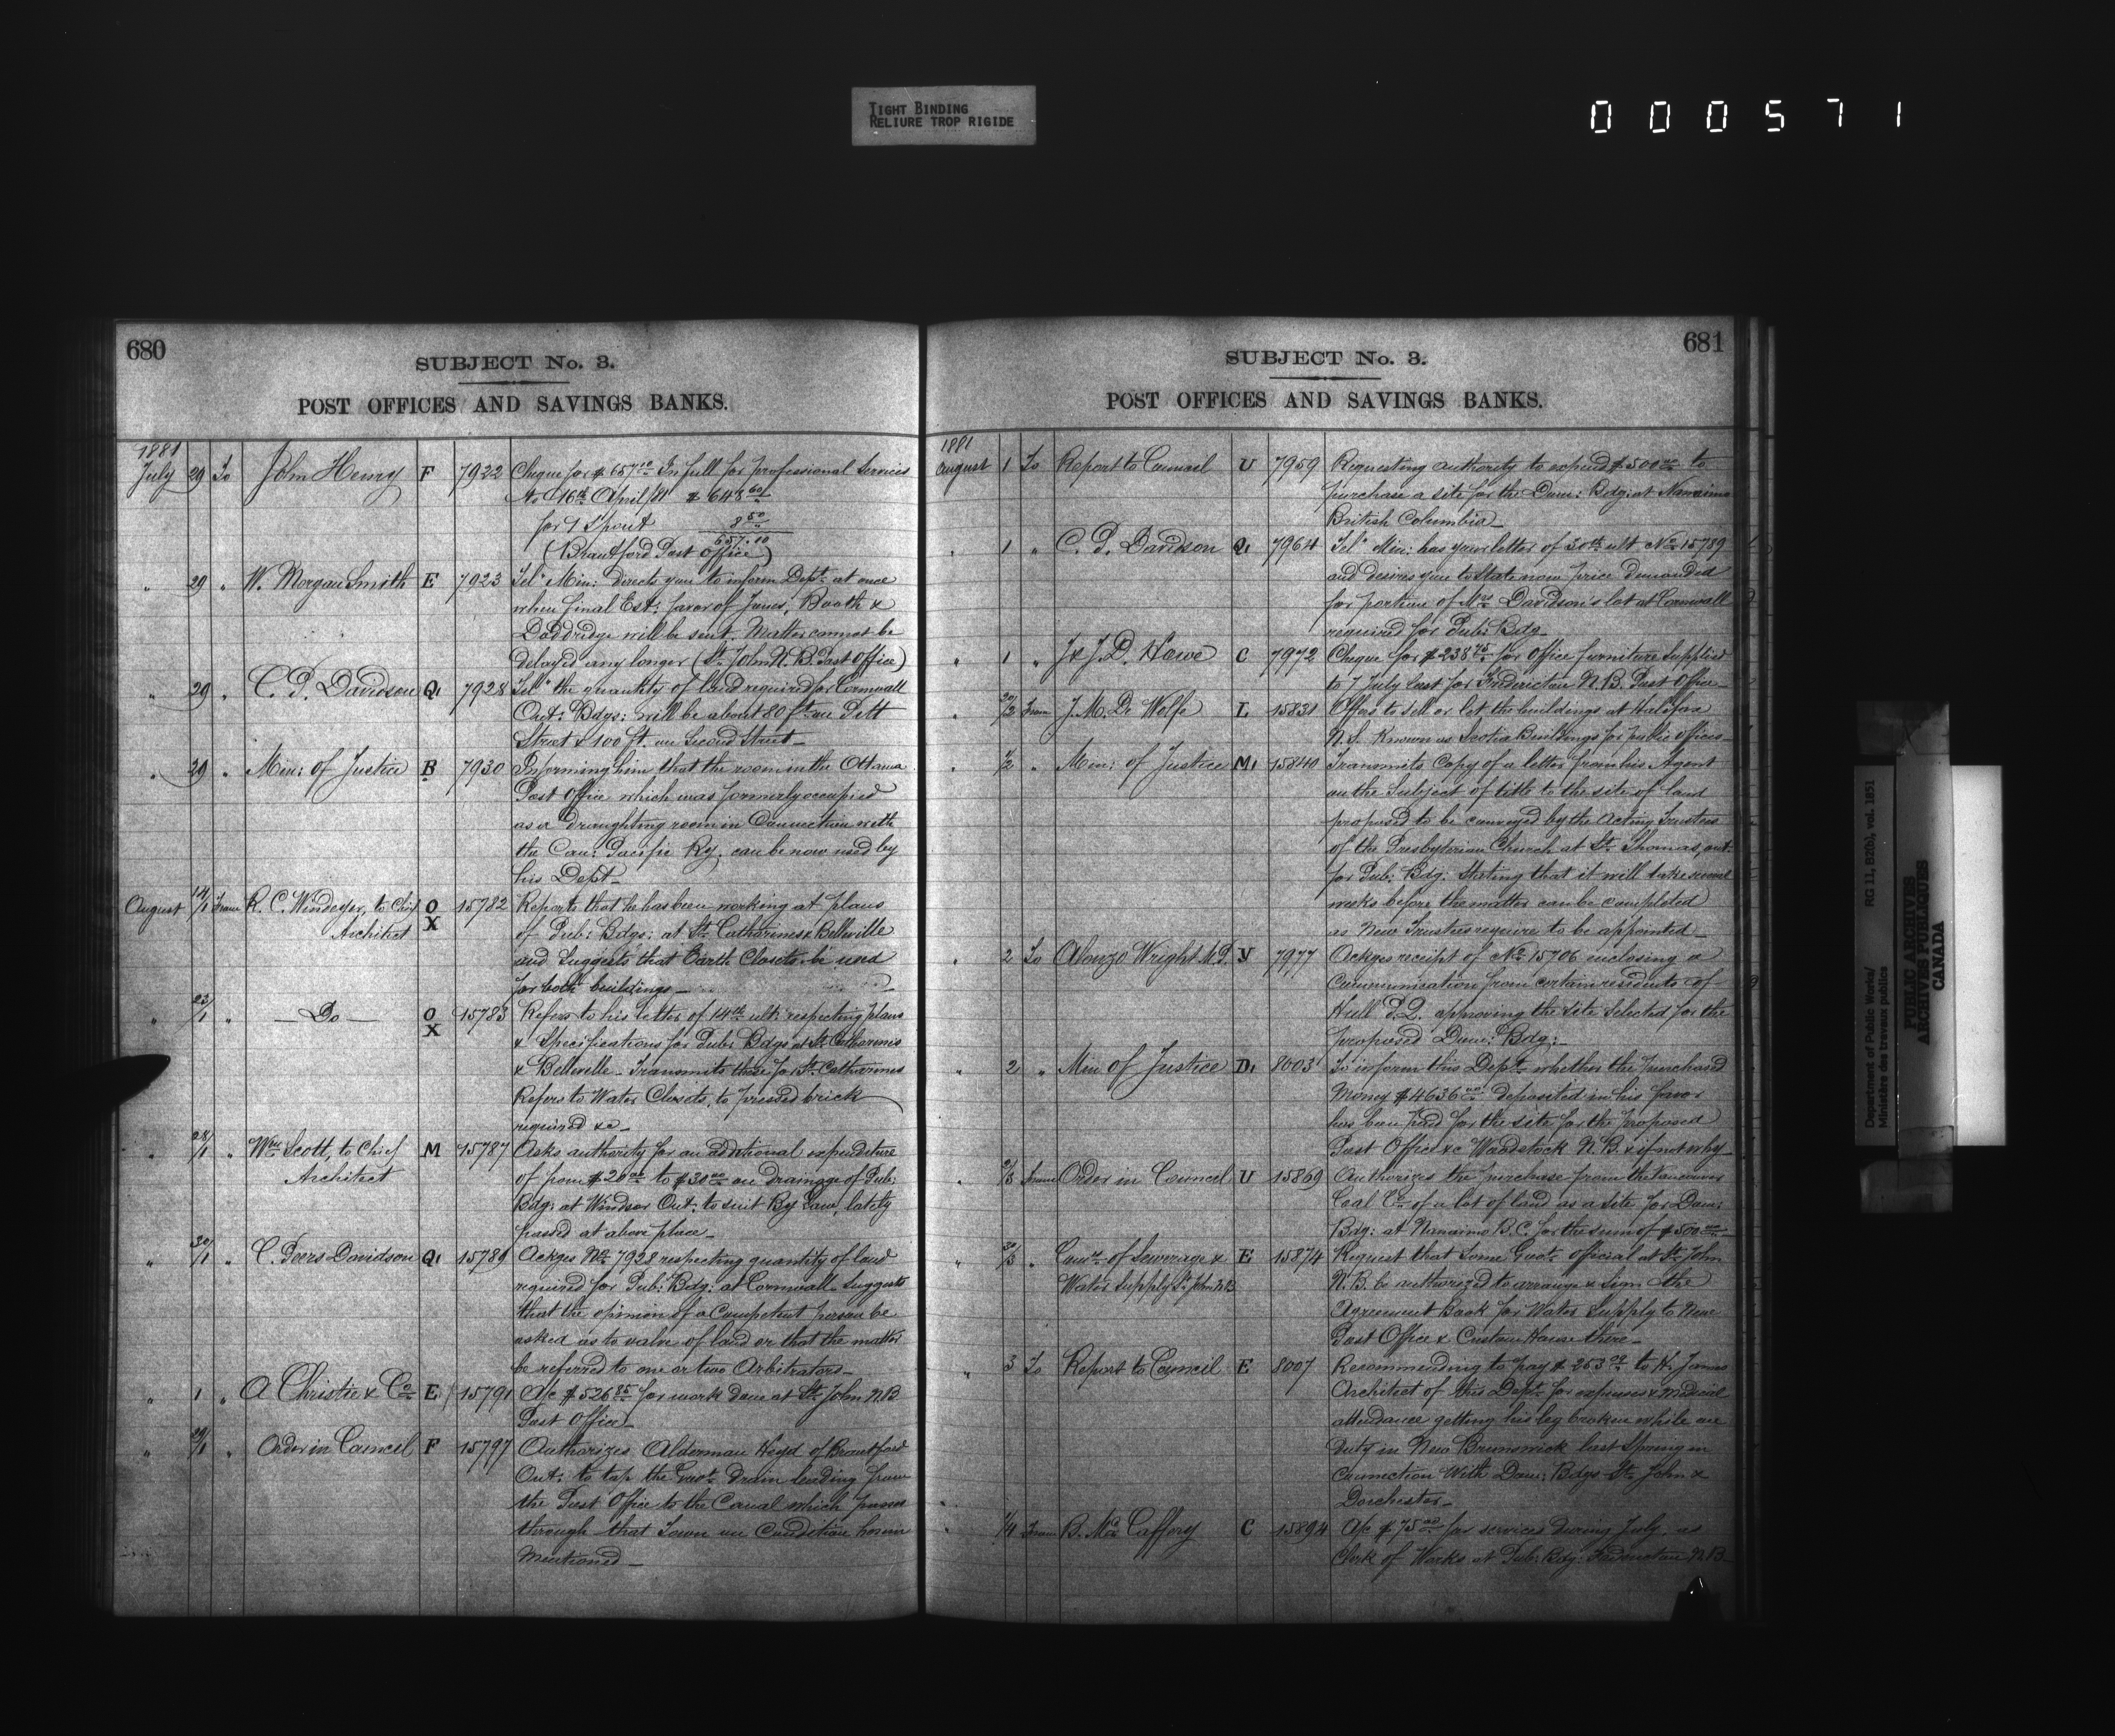 TIGHT BINDING
RELIURE TROP RIGIDE
000571
680
SUBJECT No. 3.
POST OFFICES AND SAVINGS BANKS.
1881
July 29 To John Henry F 7922 Cheque for $657.10 In full for professional Services
to 16th April/81 $648.60
for 1 Spout 8.50
657.10
(Brantford Post Office)
" 29 " W. Morgan Smith E 7923 Tel" Min: directs you to inform Dept. at once
when final Est: favor of Jones, Booth &
Doddridge will be sent. Matter cannot be
delayed any longer (St. John N.B. Post Office)
" 29 " C. P. Davidson Q1 7928 Tel" the quantity of land required for Cornwall
Ont: Bdgs: will be about 80 ft. on Pitt
Street & 100 ft. on Second Street_
" 29 " Min: of Justice B 7930 Informing him that the room in the Ottawa
Post Office which was formerly occupied
as a draughting room in Connection with
the Can: Pacific Ry. can be now used by
his Dept_
August 14/1 From R. C. Windeyer, to Chief O 15782 Reports that he has been working at plans
Architect X of Pub: Bdgs: at St. Catharines & Belleville
and Suggests that Earth Closets be used
for both buildings_
" 23/1 " —Do— O 15783 Refers to his letter of 14th ult: respecting plans
X & Specifications for Pub: Bdgs at St. Catharines
& Belleville_ Transmits those for St. Catharines
Refers to Water Closets, to pressed brick
required &c_
" 28/1 " Wm. Scott, to Chief M 15787 Asks authority for an additional expenditure
Architect of from $20.00 to $30.00 on drainage of Pub:
Bdg: at Windsor Ont: to suit By Law, lately
passed at above place_
" 30/1 " C. Peers Davidson Q1 15789 Ackges No. 7928 respecting quantity of land
required for Pub: Bdg: at Cornwall. Suggests
that the opinion of a Competent person be
asked as to value of land or that the matter
be referred to one or two Arbitrators_
" 1 " A Christie & Co. E 15791 A/c $526.85 for work done at St. John N.B.
Post Office_
" 29/1 " Order in Council F 15797 Authorizes Alderman Heyd of Brantford
Ont: to tap the Govt. Drain leading from
the Post Office to the Canal which passes
through that Town on Condition herein
Mentioned_
681
SUBJECT No. 3.
POST OFFICES AND SAVINGS BANKS.
1881
August 1 To Report to Council U 7959 Requesting authority to expend $500.00 to
purchase a site for the Dom: Bdg: at Nanaimo
British Columbia_
" 1 " C. P. Davidson Q1 7964 Tel" Min: has your letter of 30th ult No. 15789
and desires you to State now price demanded
for portion of Mrs. Davidson's lot at Cornwall
required for Pub: Bdg_
" 1 " J & J. D. Howe C 7972 Cheque for $238.75 for Office furniture Supplied
to 7 July last for Fredericton N.B. Post Office_
" 30/2 From J. M. De Wolfe L 15831 Offers to sell or let the buildings at Halifax
N.S. Known as Scotia Buildings for public offices_
" 1/2 " Min: of Justice M1 15840 Transmits Copy of a letter from his Agent
on the Subject of title to the site of land
proposed to be conveyed by the Acting Trustees
of the Presbyterian Church at St. Thomas, Ont:
for Pub: Bdg: Stating that it will take several
weeks before the matter can be completed
as New Trustees require to be appointed_
" 2 To Alonzo Wright M.P. Y 7977 Ackges receipt of No. 15706 enclosing a
Communication from certain residents of
Hull P.Q. approving the site Selected for the
proposed Dom: Bdg:_
" 2 " Min of Justice D1 8003 To inform this Dept. whether the purchased
Money $4636.00 deposited in his favor
has been paid for the site for the proposed
Post Office &c Woodstock N.B. & if not why_
" 2/3 From Order in Council U 15869 Authorizes the purchase from the Vancouver
Coal Co. of a lot of land as a site for Dom:
Bdg: at Nanaimo B.C. for the sum of $500.00_
" 30/3 " Comrs. of Sewerage & E 15874 Request that Some Govt. official at St. John
Water Supply St. John N.B. N.B. be authorized to arrange & Sign the
Agreement Book for Water Supply to New
Post Office & Custom House there_
" 3 To Report to Council E 8007 Recommending to pay $253.00 to H. James
Architect of this Dept. for expenses & Medical
attendance getting his leg broken while on
duty in New Brunswick last Spring in
Connection With Dom: Bdgs St. John &
Dorchester_
" 1/4 From B. McCaffery C 15894 A/c $75.00 for services during July, as
Clerk of Works at Pub: Bdg: Fredericton N.B.
Department of Public Works/ RG 11, B2(b), vol. 1851
Ministère des travaux publics
PUBLIC ARCHIVES
ARCHIVES PUBLIQUES
CANADA